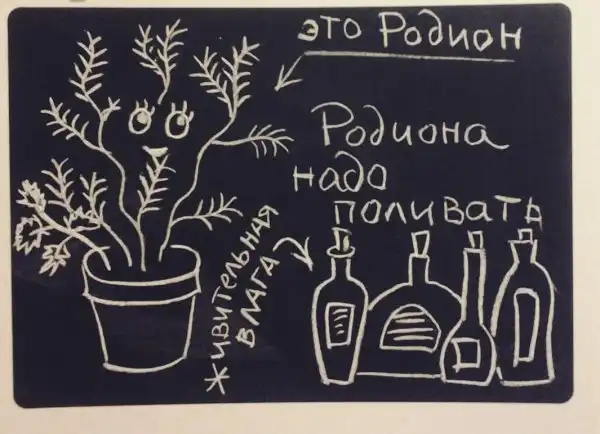 это Родион
Родиона
надо
поливать
живительная
влага